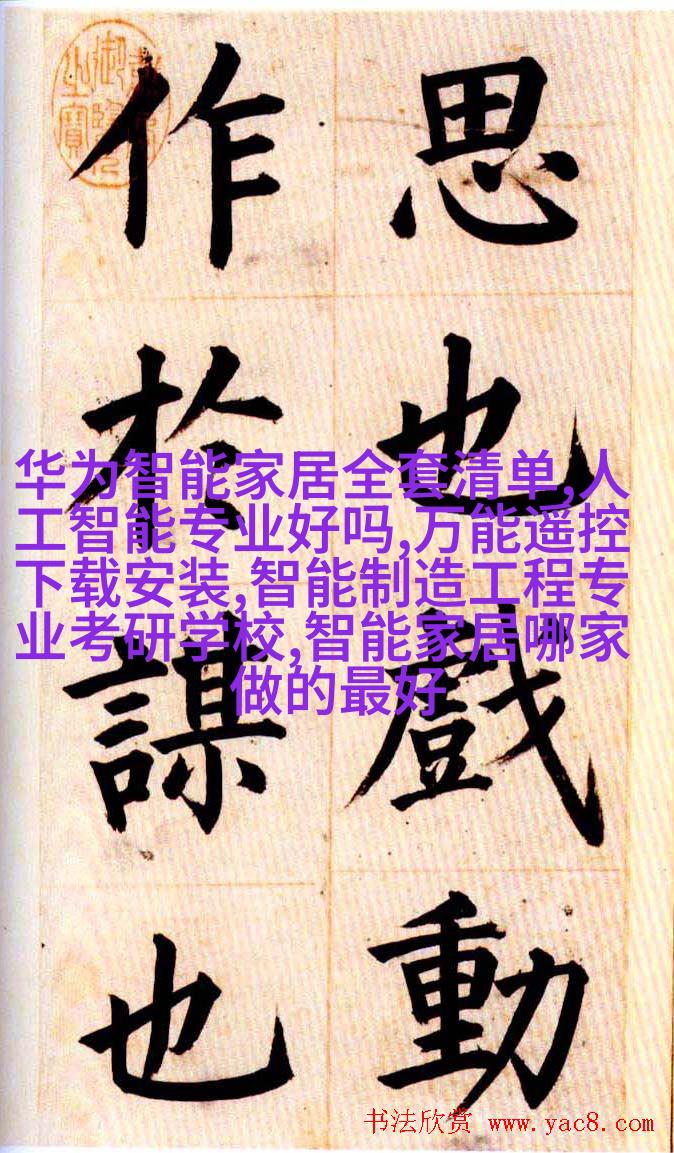 思也戲動
作於謀也
华为智能家居全套清单,人
工智能专业好吗,万能遥控
下载安装,智能制造工程专
业考研学校,智能家居哪家
做的最好
书法欣赏 www.yac8.com